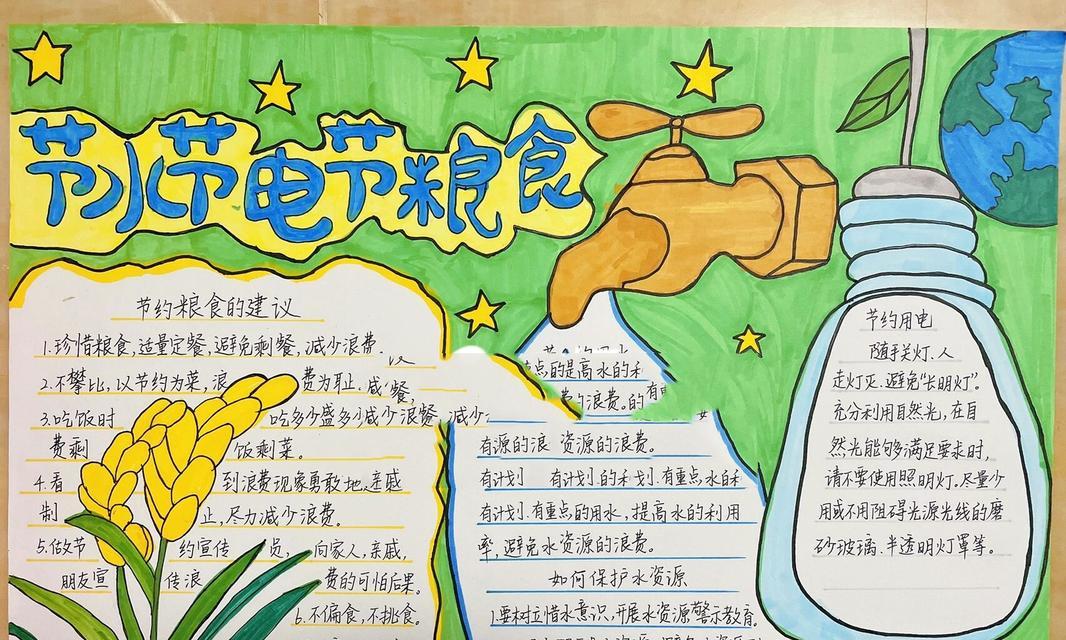 节水节电节粮食
节约粮食的建议
1.珍惜粮食,适量定餐,避免剩餐,减少浪费。
2.不攀比,以节约为荣,浪 费为耻.
3.吃饭时 吃多少盛多少减少浪餐 减少
费剩 饭剩菜。
4.看 到浪费现象勇敢地 亲戚
制 止,尽力减少浪费。
5.做节 约宣传 员, 向家人,亲戚,
朋友宣 传浪 费的可怕后果。
6.不偏食,不挑食。
点的是高水的利
的浪费。的有
有源的浪 资源的浪费。
有计划 有计划.的 划.有重点水
有计划.有重点的用水,提高水的利用
率,避免水资源的浪费。
如何保护水资源
1.要树立惜水意识,开展水资源警示教育。
节约用电
随手关灯.人
走灯灭.避免“长明灯”。
充分利用自然光,在自
然光能够满足要求时,
请不要使用照明灯.尽量少
用或不用阻碍光源光线的磨
砂玻璃.半透明灯罩等。